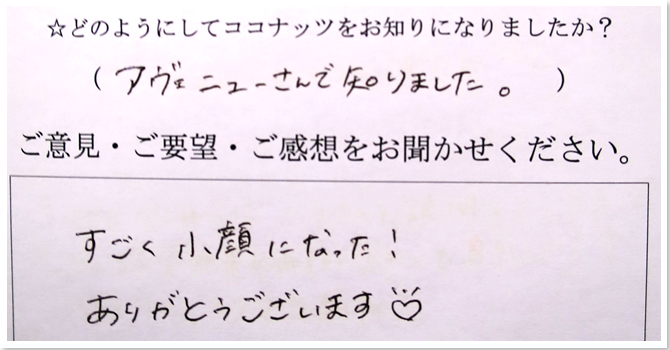 ☆どのようにしてココナッツをお知りになりましたか？
（ アヴェニューさんで知りました。 ）
ご意見・ご要望・ご感想をお聞かせください。
すごく小顔になった！
ありがとうございます♡